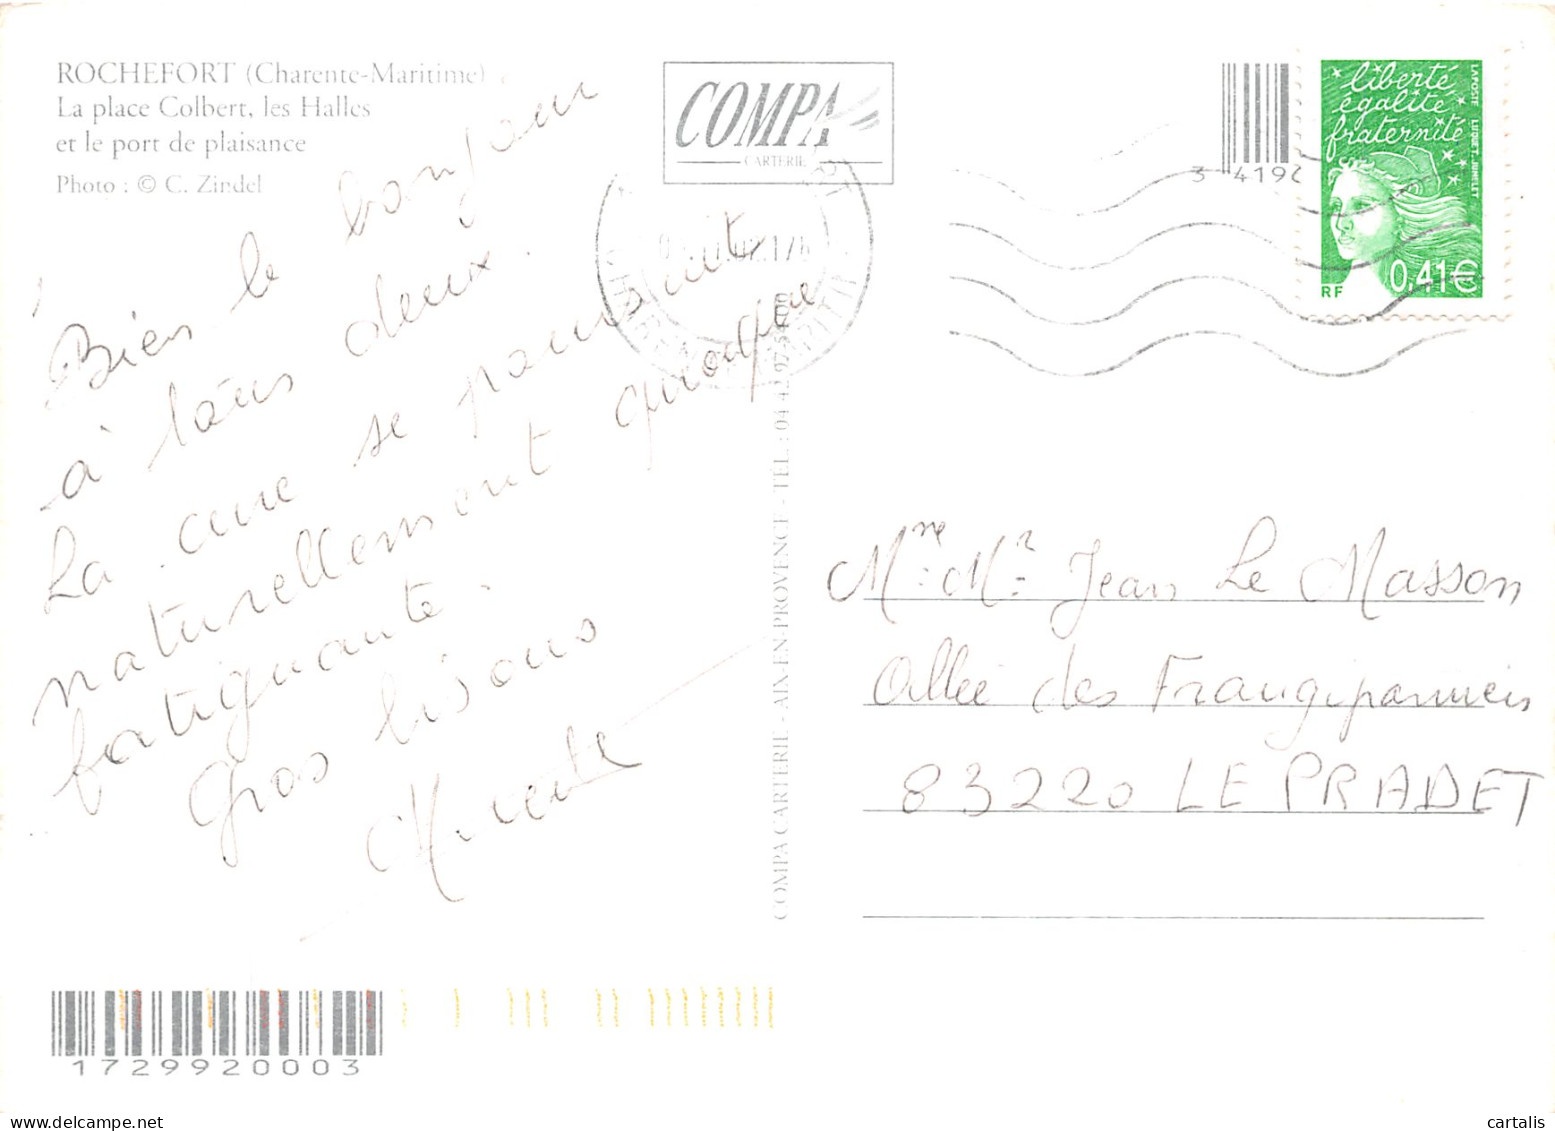 ROCHEFORT (Charente-Maritime)
La place Colbert, les Halles
et le port de plaisance
Photo : © C. Zindel
COMPA
CARTERIE
3 4192
liberté
égalité
fraternité
LA POSTE LUQUET. JUMELET
RF
0,41€
Bien le bonjour
à tous deux.
La cure se poursuit
naturellement quoique
fatiguante.
Gros bisous
COMPA CARTERIE - AIX-EN-PROVENCE - TÉL. : 04 42 97
Mme Mr Jean Le Masson
Allée des Frangipanniers
83220 LE PRADET
1729920003
cartalis